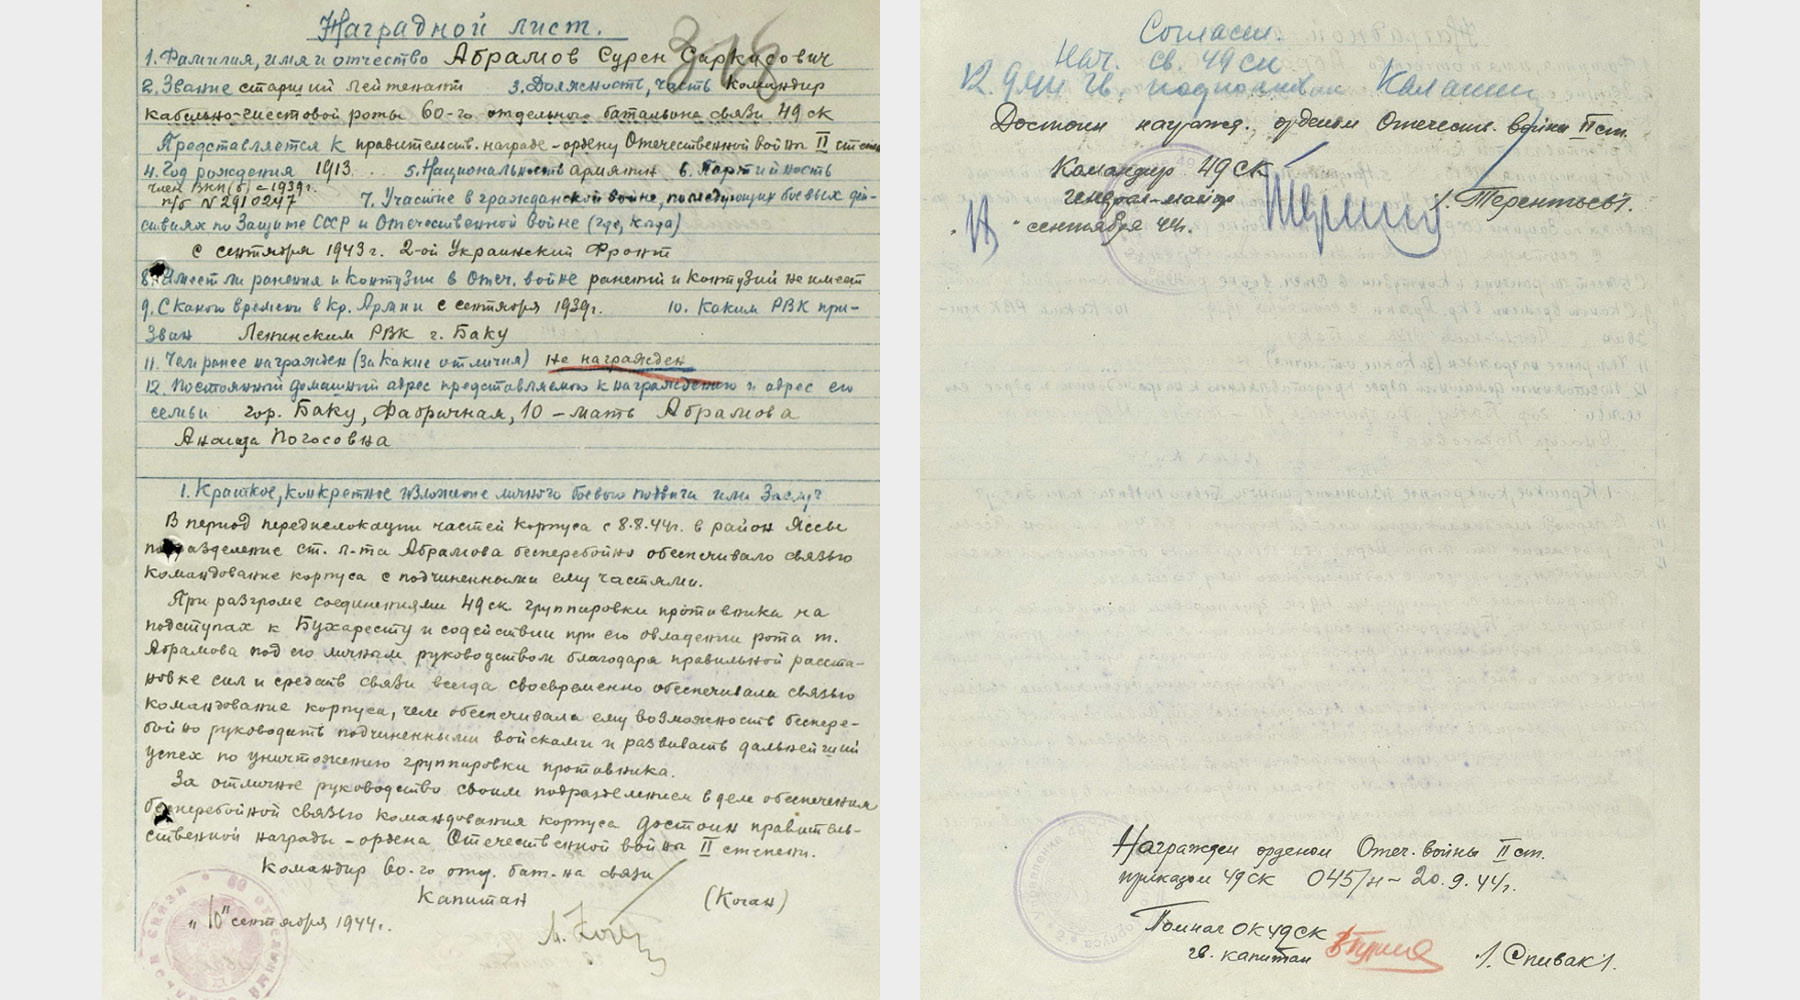 Наградной лист.
318
1. Фамилия, имя и отчество Абрамов Сурен Саркисович
2. Звание старший лейтенант 3. Должность, часть Командир
кабельно-шестовой роты 60-го отдельного батальона связи 49 ск
Представляется к правительств. награде - ордену Отечественной войны II степени
4. Год рождения 1913. 5. Национальность армянин 6. Партийность
член ВКП(б) с 1939г.
п/б N 2910247 7. Участие в гражданской войне, последующих боевых дей-
ствиях по защите СССР и Отечественной войне (где, когда)
с сентября 1943 г. 2-ой Украинский Фронт
8. Имеет ли ранения и контузии в Отеч. войне ранений и контузий не имеет
9. С какого времени в Кр. Армии с сентября 1939г. 10. Каким РВК при-
зван Ленинским РВК г. Баку
11. Чем ранее награжден (за какие отличия) не награжден
12. Постоянный домашний адрес представляемого к награждению и адрес его
семьи гор. Баку, Фабричная, 10 - мать Абрамова
Погосовна
1. Краткое, конкретное изложение личного боевого подвига или заслуг
В период передислокации частей корпуса с 8.8.44г. в район Яссы
подразделение ст. л-та Абрамова бесперебойно обеспечивало связью
командование корпуса с подчиненными ему частями.
При разгроме соединениями 49 ск группировки противника на
подступах к Бухаресту и содействии при его овладении рота т.
Абрамова под его личным руководством благодаря правильной расста-
новке сил и средств связи всегда своевременно обеспечивала связью
командование корпуса, чем обеспечивала ему возможность беспере-
бойно руководить подчиненными войсками и развивать дальнейший
успех по уничтожению группировки противника.
За отличное руководство своим подразделением в деле обеспечения
бесперебойной связью командования корпуса достоин правитель-
ственной награды - ордена Отечественной войны II степени.
Командир 60-го отд. бат-на связи
Капитан (Коган)
"10" сентября 1944г.
Согласен.
Нач. св. 49 ск
гв. подполковник
Достоин награжд. орденом Отечеств. войны II ст.
Командир 49 СК
генерал-майор /Терентьев/.
" сентября 44г.
Награжден орденом Отеч. войны II ст.
приказом 49 ск 045/н - 20.9.44г.
Помнач ОК 49 СК
гв. капитан /Спивак/.